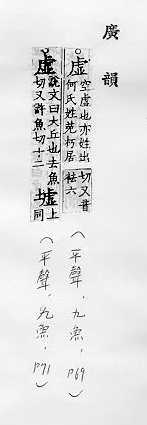 廣韻
虛
空虛也亦姓出
何氏姓苑朽居
切又音
祛六
虛
說文曰大丘也去魚
切又許魚切十二
墟
上
同
(平聲，九魚，P69)
(平聲，九魚，P71)